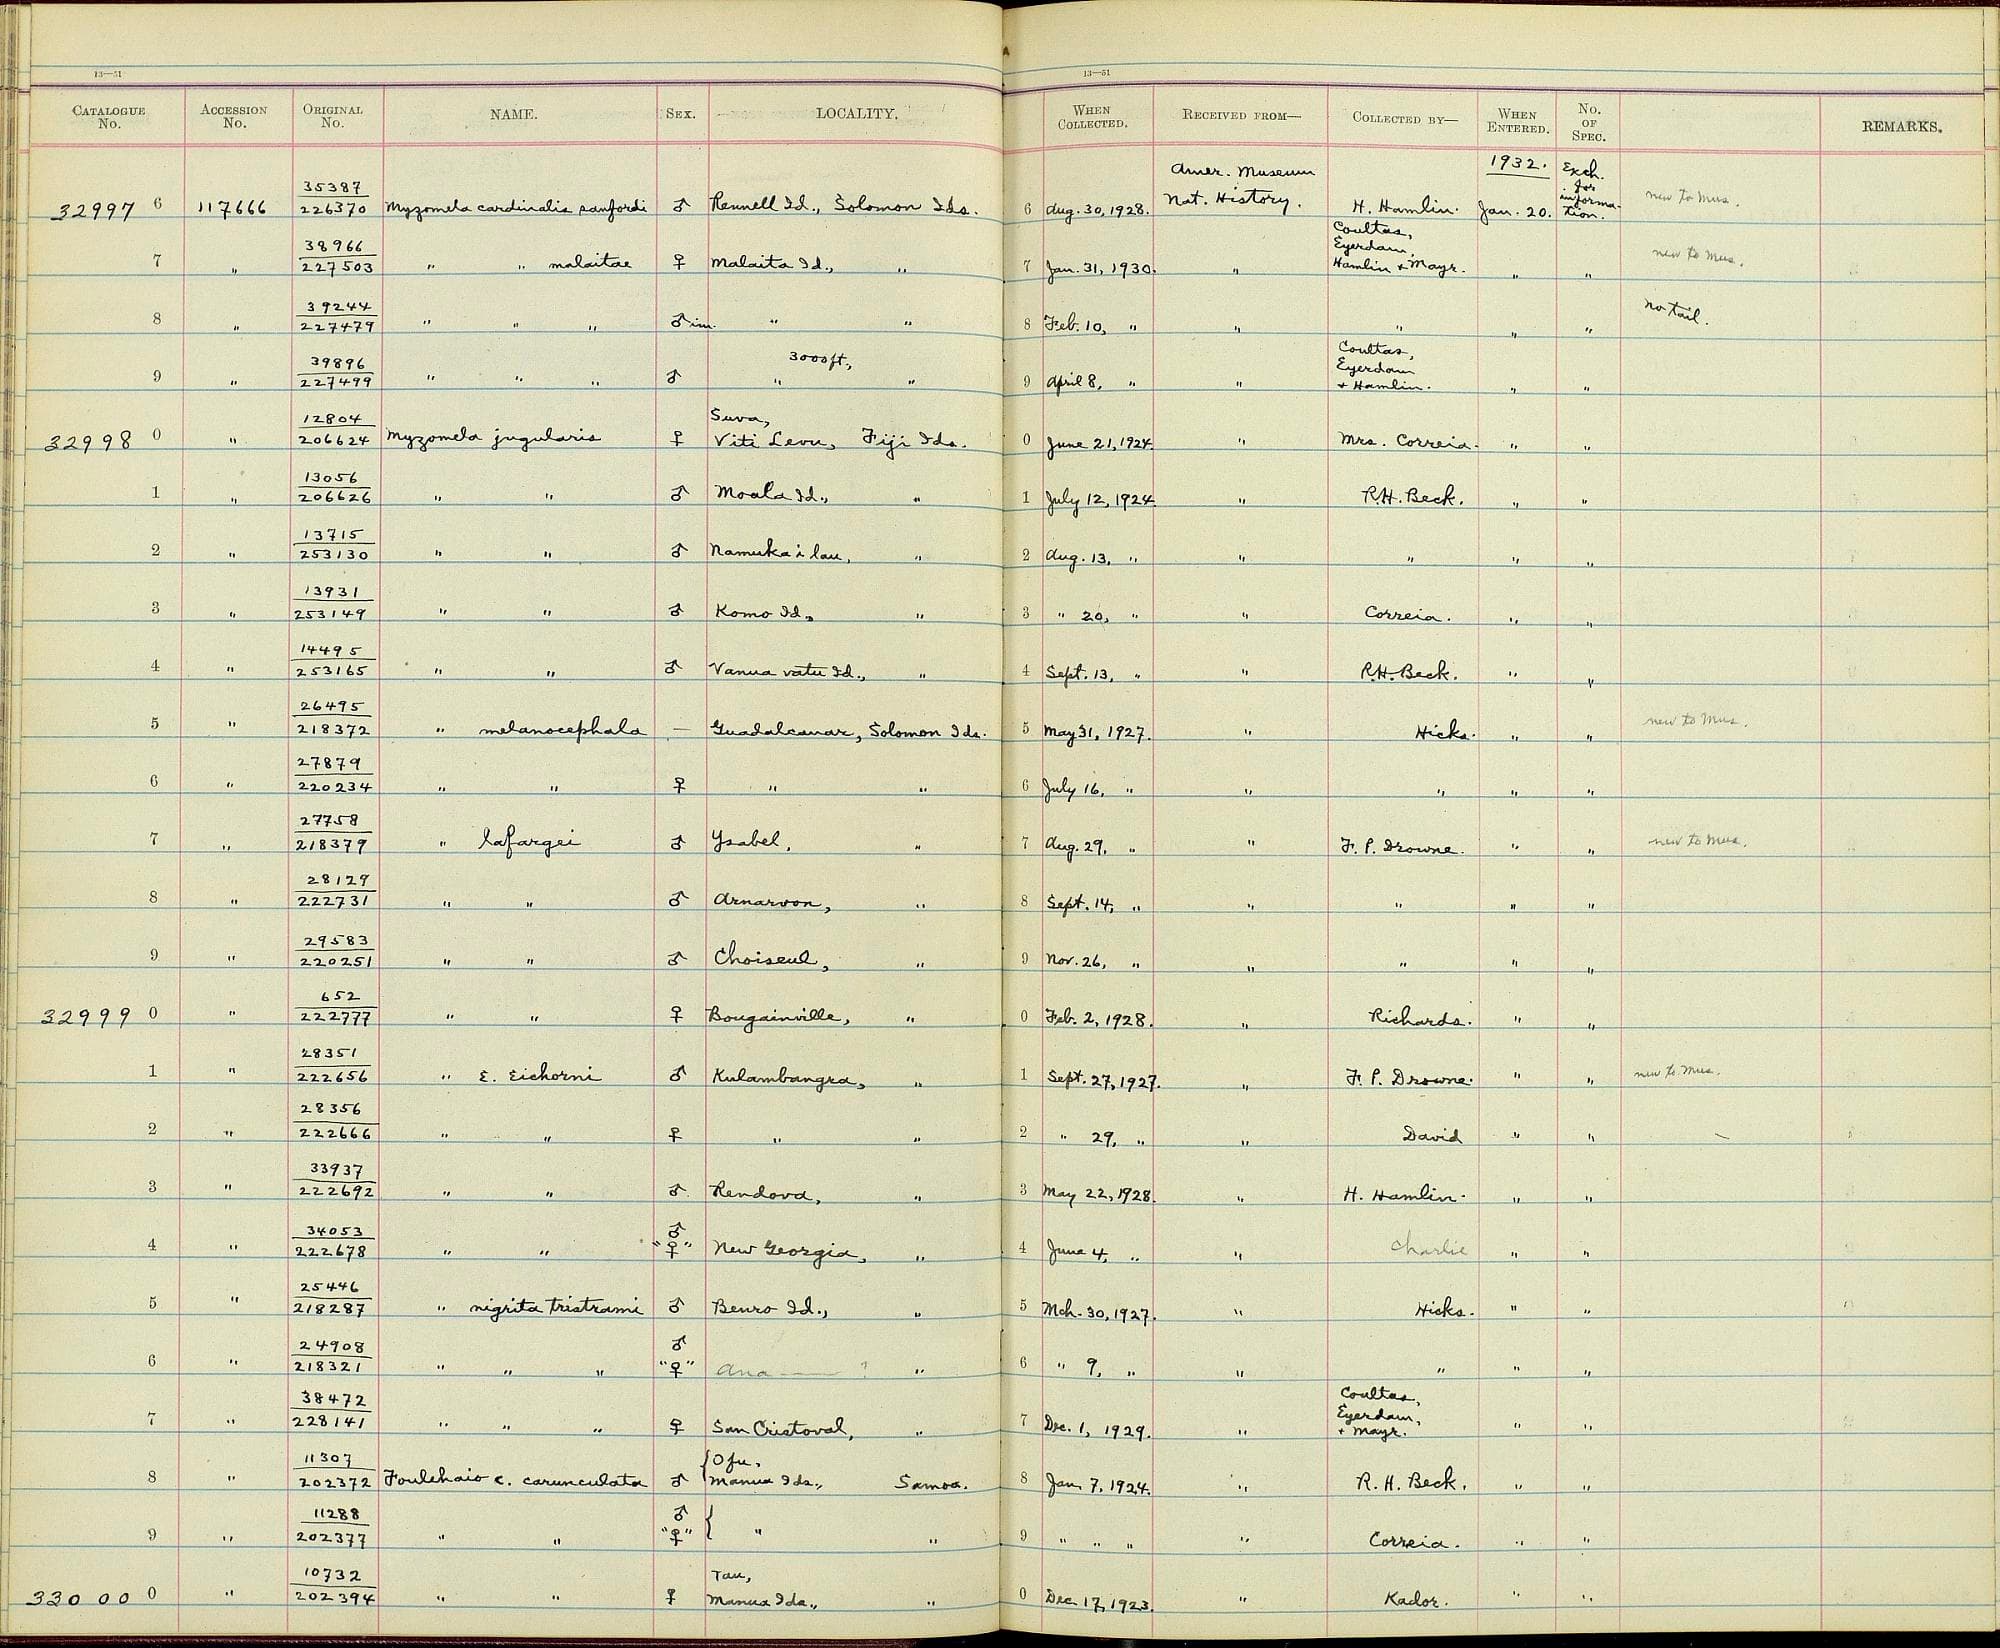 13—51 13—51
CATALOGUE No. ACCESSION No. ORIGINAL No. NAME. SEX. LOCALITY. WHEN COLLECTED. RECEIVED FROM— COLLECTED BY— WHEN ENTERED. No. OF SPEC. REMARKS.
32997 6 117666 35387 / 226370 Myzomela cardinalis sanfordi ♂ Rennell Id., Solomon Ids. 6 Aug. 30, 1928. Amer. Museum Nat. History. H. Hamlin. 1932. Jan. 20. Exch. for information. new to Mus.
7 " 38966 / 227503 " " malaitae ♀ Malaita Id., " 7 Jan. 31, 1930. " Coultas, Eyerdam, Hamlin + Mayr. " " new to Mus.
8 " 39244 / 227479 " " " ♂ im. " " 8 Feb. 10, " " " " " no tail.
9 " 39896 / 227499 " " " ♂ 3000ft., " " 9 April 8, " " Coultas, Eyerdam + Hamlin. " "
32998 0 " 12804 / 206624 Myzomela jugularis ♀ Suva, Viti Levu, Fiji Ids. 0 June 21, 1924. " Mrs. Correia. " "
1 " 13056 / 206626 " " ♂ Moala Id., " 1 July 12, 1924. " R.H. Beck. " "
2 " 13715 / 253130 " " ♂ Namuka i lau, " 2 Aug. 13, " " " " "
3 " 13931 / 253149 " " ♂ Komo Id., " 3 " 20, " " Correia. " "
4 " 14495 / 253165 " " ♂ Vanua vatu Id., " 4 Sept. 13, " " R.H. Beck. " "
5 " 26495 / 218372 " melanocephala — Guadalcanar, Solomon Ids. 5 May 31, 1927. " Hicks. " " new to Mus.
6 " 27879 / 220234 " " ♀ " " 6 July 16, " " " " "
7 " 27758 / 218379 " lafargei ♂ Ysabel, " 7 Aug. 29, " " F. P. Drowne. " " new to Mus.
8 " 28129 / 222731 " " ♂ Arnarvon, " 8 Sept. 14, " " " " "
9 " 29583 / 220251 " " ♂ Choiseul, " 9 Nov. 26, " " " " "
32999 0 " 652 / 222777 " " ♀ Bougainville, " 0 Feb. 2, 1928. " Richards. " "
1 " 28351 / 222656 " E. Eichorni ♂ Kulambangra, " 1 Sept. 27, 1927. " F. P. Drowne. " " new to Mus.
2 " 28356 / 222666 " " ♀ " " 2 " 29, " " David " "
3 " 33937 / 222692 " " ♂ Rendova, " 3 May 22, 1928. " H. Hamlin. " "
4 " 34053 / 222678 " " ♂ "♀" New Georgia, " 4 June 4, " " Charlie " "
5 " 25446 / 218287 " nigrita tristrami ♂ Benro Id., " 5 Mch. 30, 1927. " Hicks. " "
6 " 24908 / 218321 " " " ♂ "♀" Ana —— ? " 6 " 9, " " " " "
7 " 38472 / 228141 " " " ♀ San Cristoval, " 7 Dec. 1, 1929. " Coultas, Eyerdam, + Mayr. " "
8 " 11307 / 202372 Foulehaio c. carunculata ♂ { Ofu, Manua Ids., Samoa. 8 Jan. 7, 1924. " R. H. Beck. " "
9 " 11288 / 202377 " " ♂ "♀" { " " 9 " " " " Correia. " "
33000 0 " 10732 / 202394 " " ♀ Tau, Manua Ids., " 0 Dec. 17, 1923. " Kador. " "